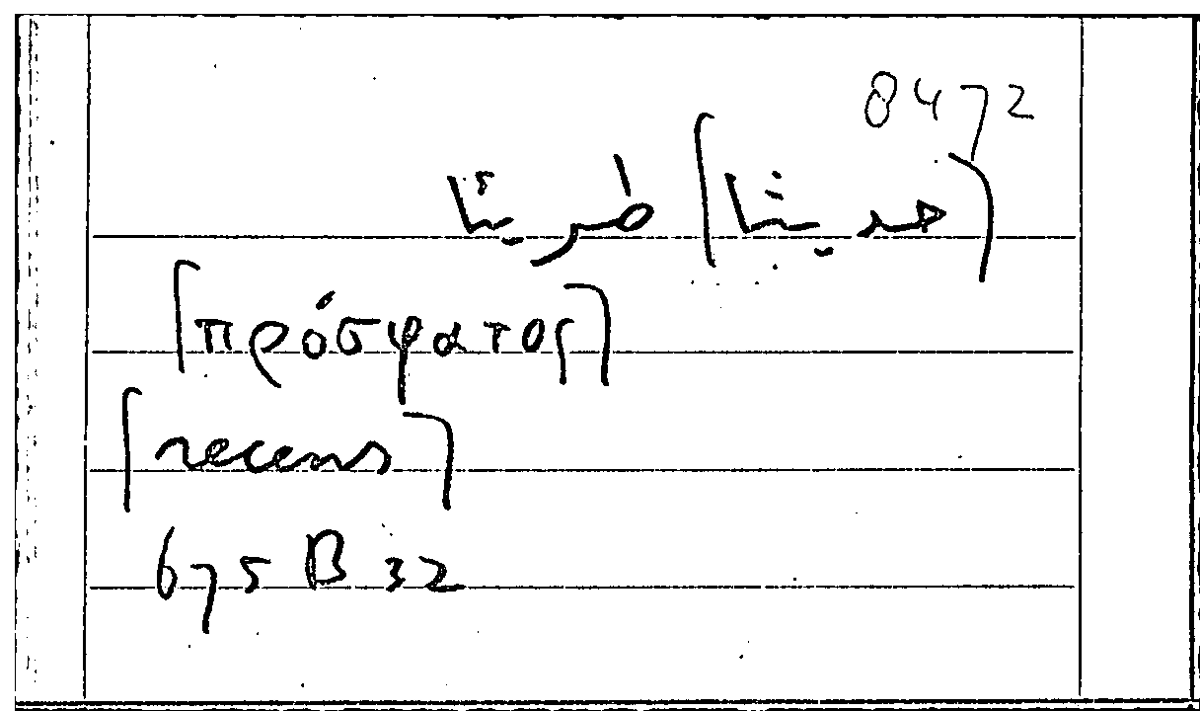 8472
[حديثا] طريئا
[πρόσφατος]
[recens]
675 B 32